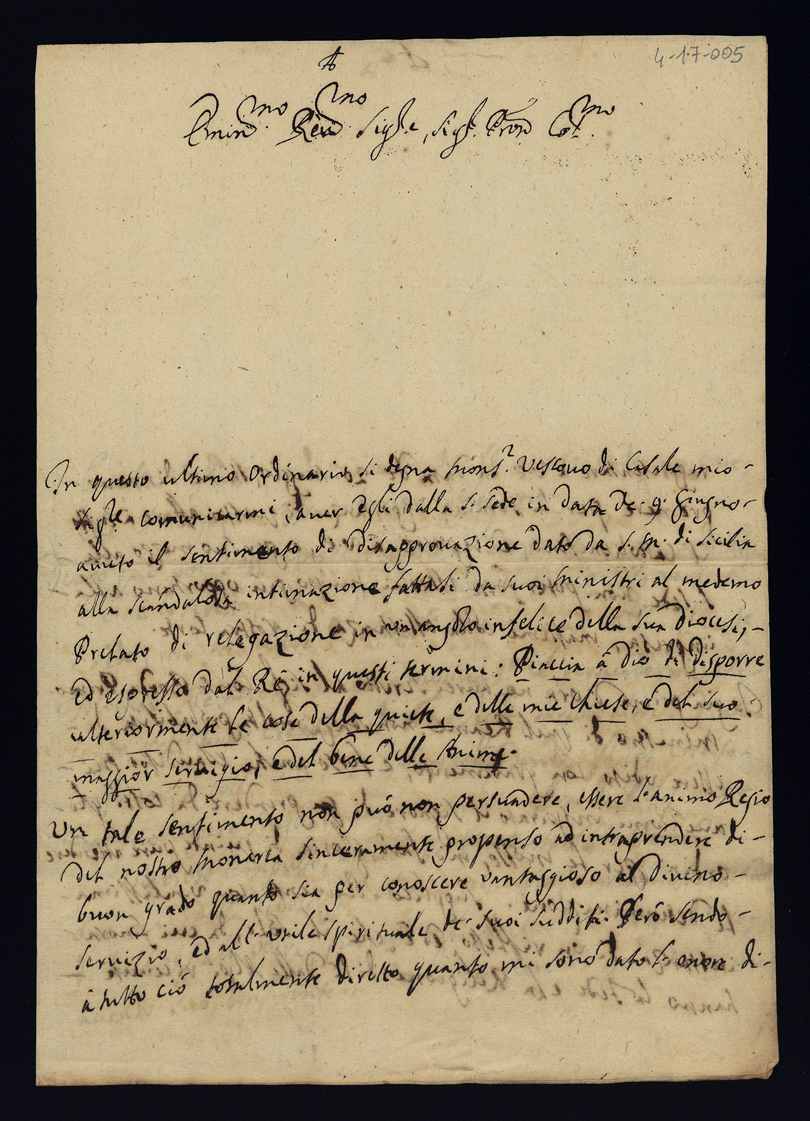 4-17-005
Emin.mo Rev.mo Sig.re, Sig.r Pron Col.mo
In questo ultimo ordinario si degna Mons.r Vescovo di Casale mio-
Sig.re comunicarmi, aver egli dalla S. Sede in data de' 9. Giugno-
avuto il sentimento di disapprovazione dato da S. M. di Sicilia
alla scandalosa intimazione fattasi da suoi Ministri al medemo
Prelato di relegazione in un angolo infelice della sua Diocesi,-
ed espresso dal Rè in questi termini: Piaccia à Dio di disporre
ulteriormente le cose della quiete, e delle mie Chiese, e del suo
maggior servigio, e del bene delle Anime.
Un tale sentimento non può non persuadere, essere l'animo Regio
del nostro Monarca sinceramente propenso ad intraprendere di-
buon grado quanto sia per conoscere vantaggioso al divino-
servizio, ed all'utile spirituale de' suoi sudditi. Però sendo-
à tutto ciò totalmente diretto quanto mi sono dato l'onore di-